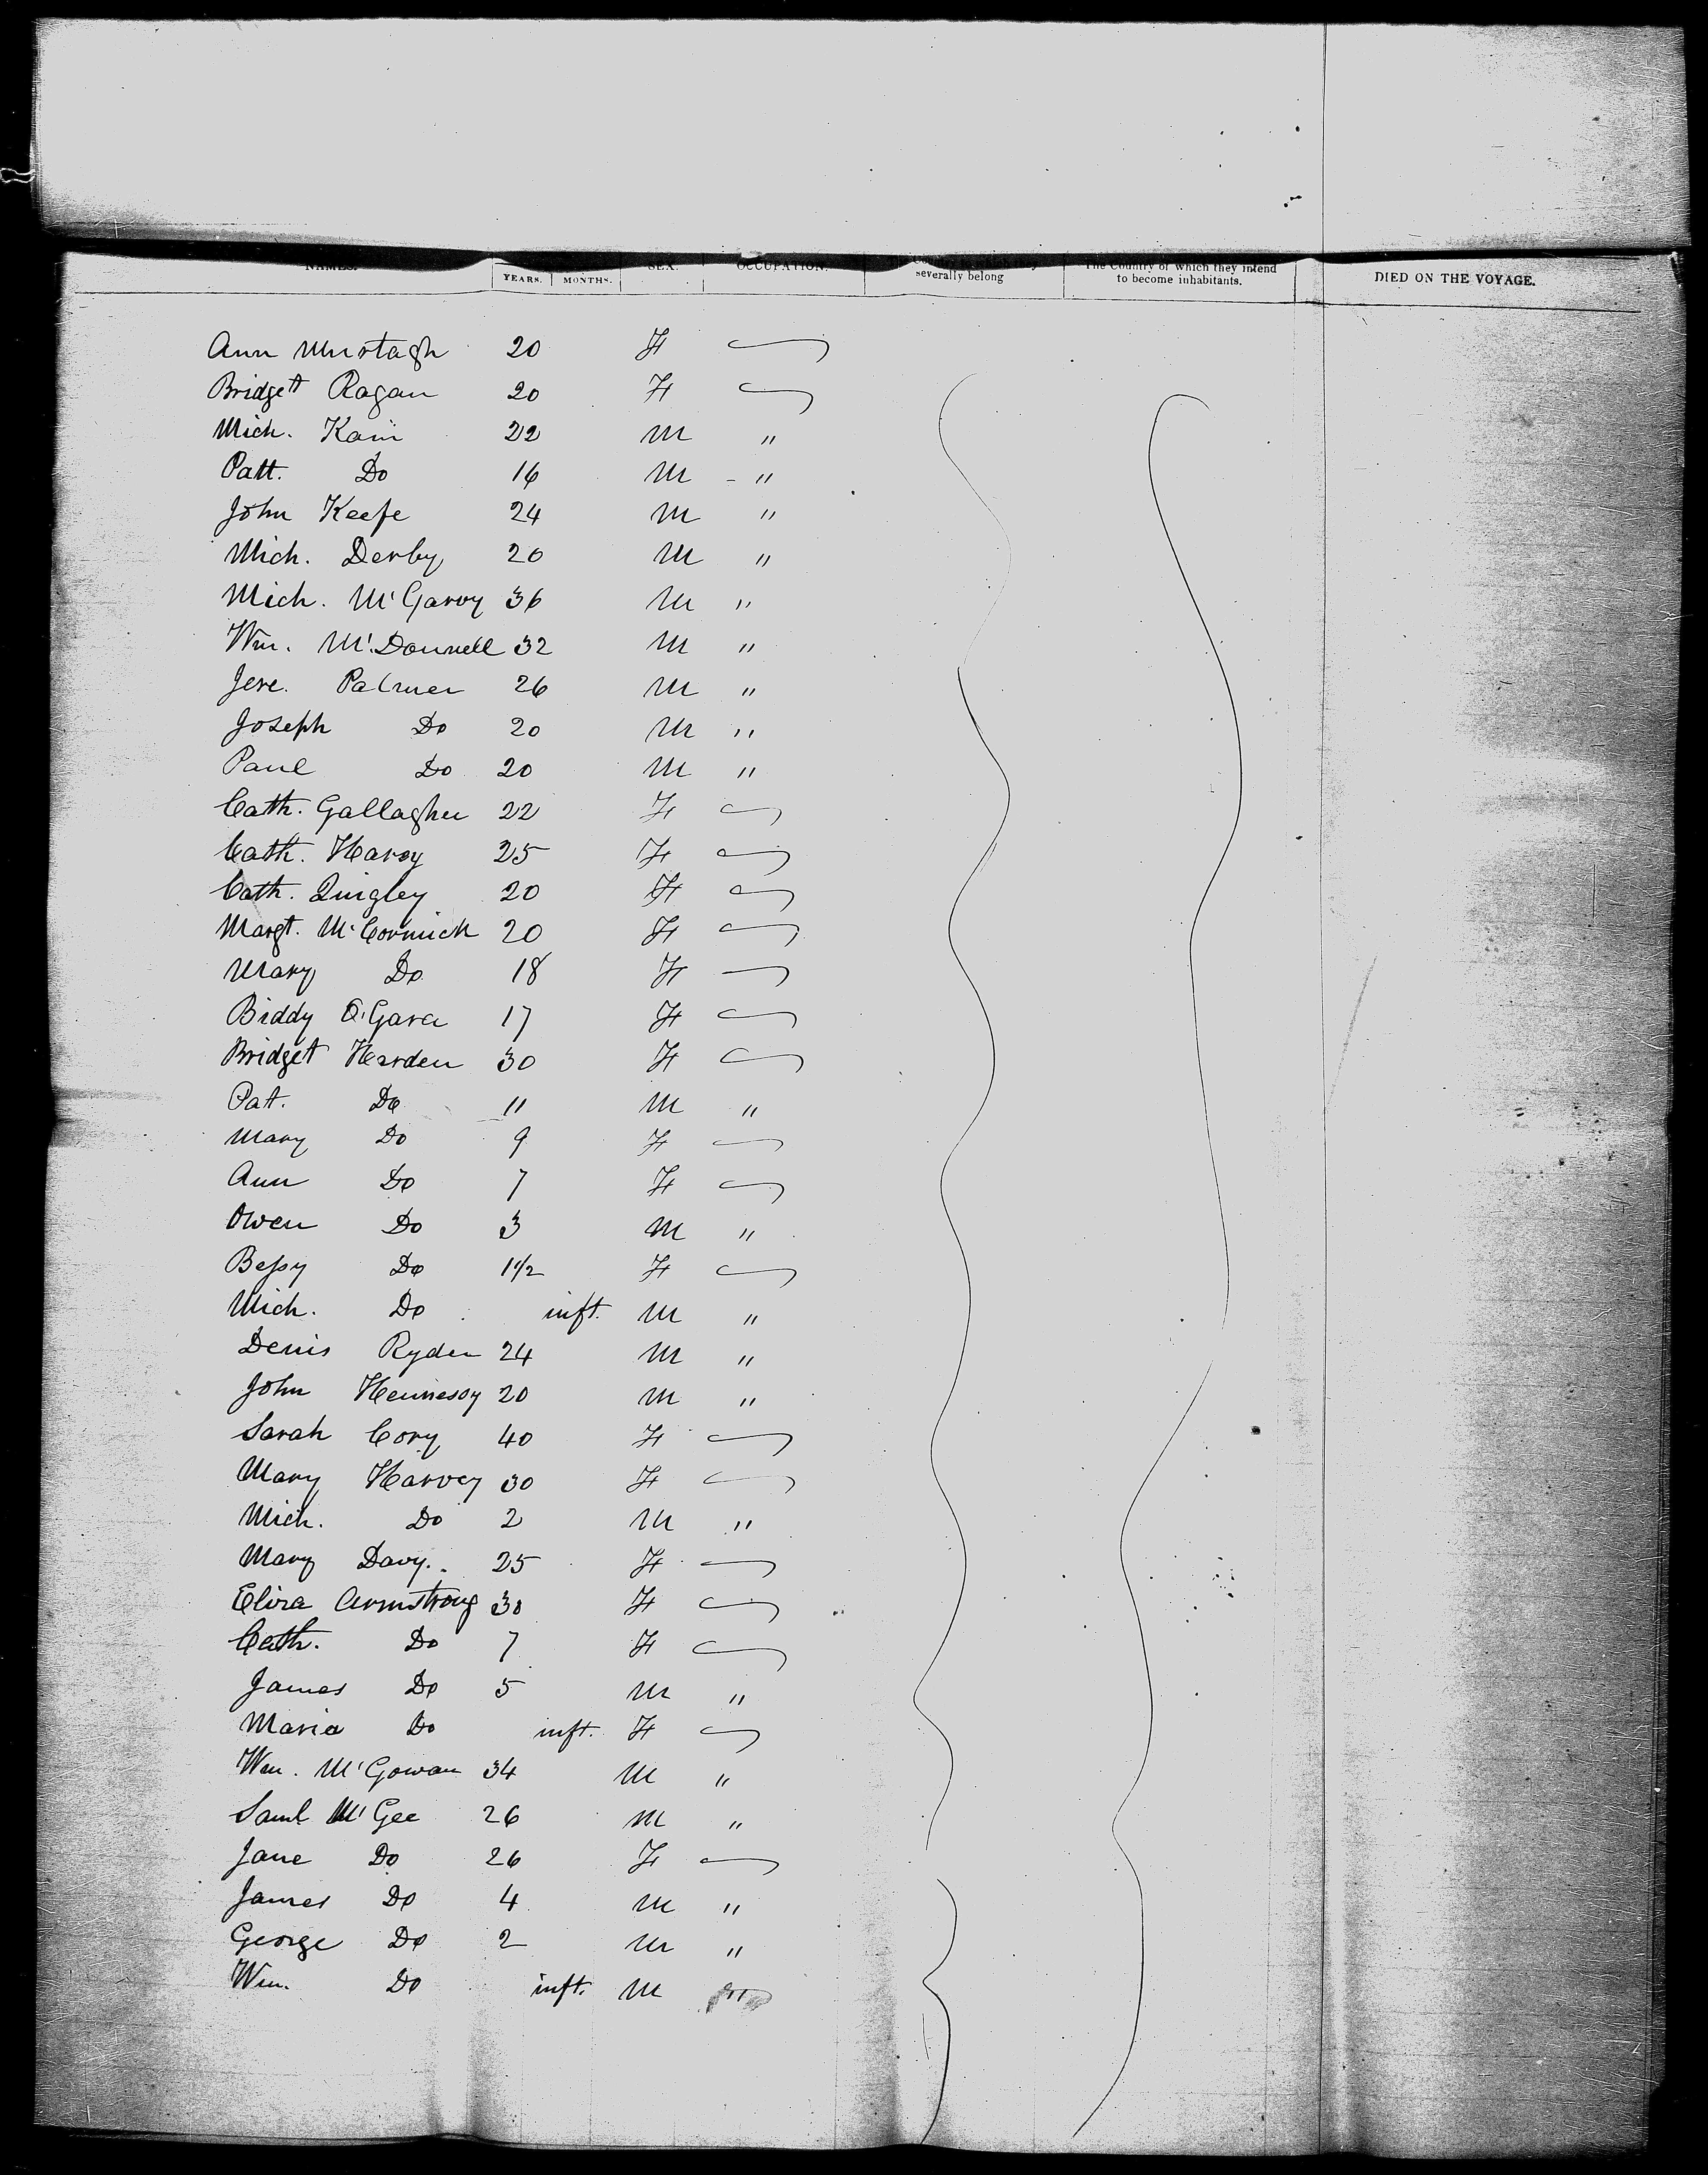 NAMES. YEARS. MONTHS. SEX. OCCUPATION. The Country to which they severally belong The Country of which they intend to become inhabitants. DIED ON THE VOYAGE.
Ann Murtagh 20 F
Bridgett Ragan 20 F
Mich. Kain 22 M "
Patt. Do 16 M - "
John Keefe 24 M "
Mich. Derby 20 M "
Mich. McGarvy 36 M "
Wm. McDonnell 32 M "
Jere. Palmer 26 M "
Joseph Do 20 M "
Paul Do 20 M "
Cath. Gallagher 22 F
Cath. Harvy 25 F
Cath. Quigley 20 F
Margt. McCormick 20 F
Mary Do 18 F
Biddy O'Gara 17 F
Bridgett Harden 30 F
Pat. Do 11 M "
Mary Do 9 F
Ann Do 7 F
Owen Do 3 M "
Bessy Do 1 1/2 F
Mich. Do inft. M "
Denis Ryder 24 M "
John Hennessy 20 M "
Sarah Cory 40 F
Mary Harvey 30 F
Mich. Do 2 M "
Mary Davy. 25 F
Eliza Armstrong 30 F
Cath. Do 7 F
James Do 5 M "
Maria Do inft. F
Wm. McGowan 34 M "
Saml McGee 26 M "
Jane Do 26 F
James Do 4 M "
George Do 2 M "
Wm. Do inft. M "